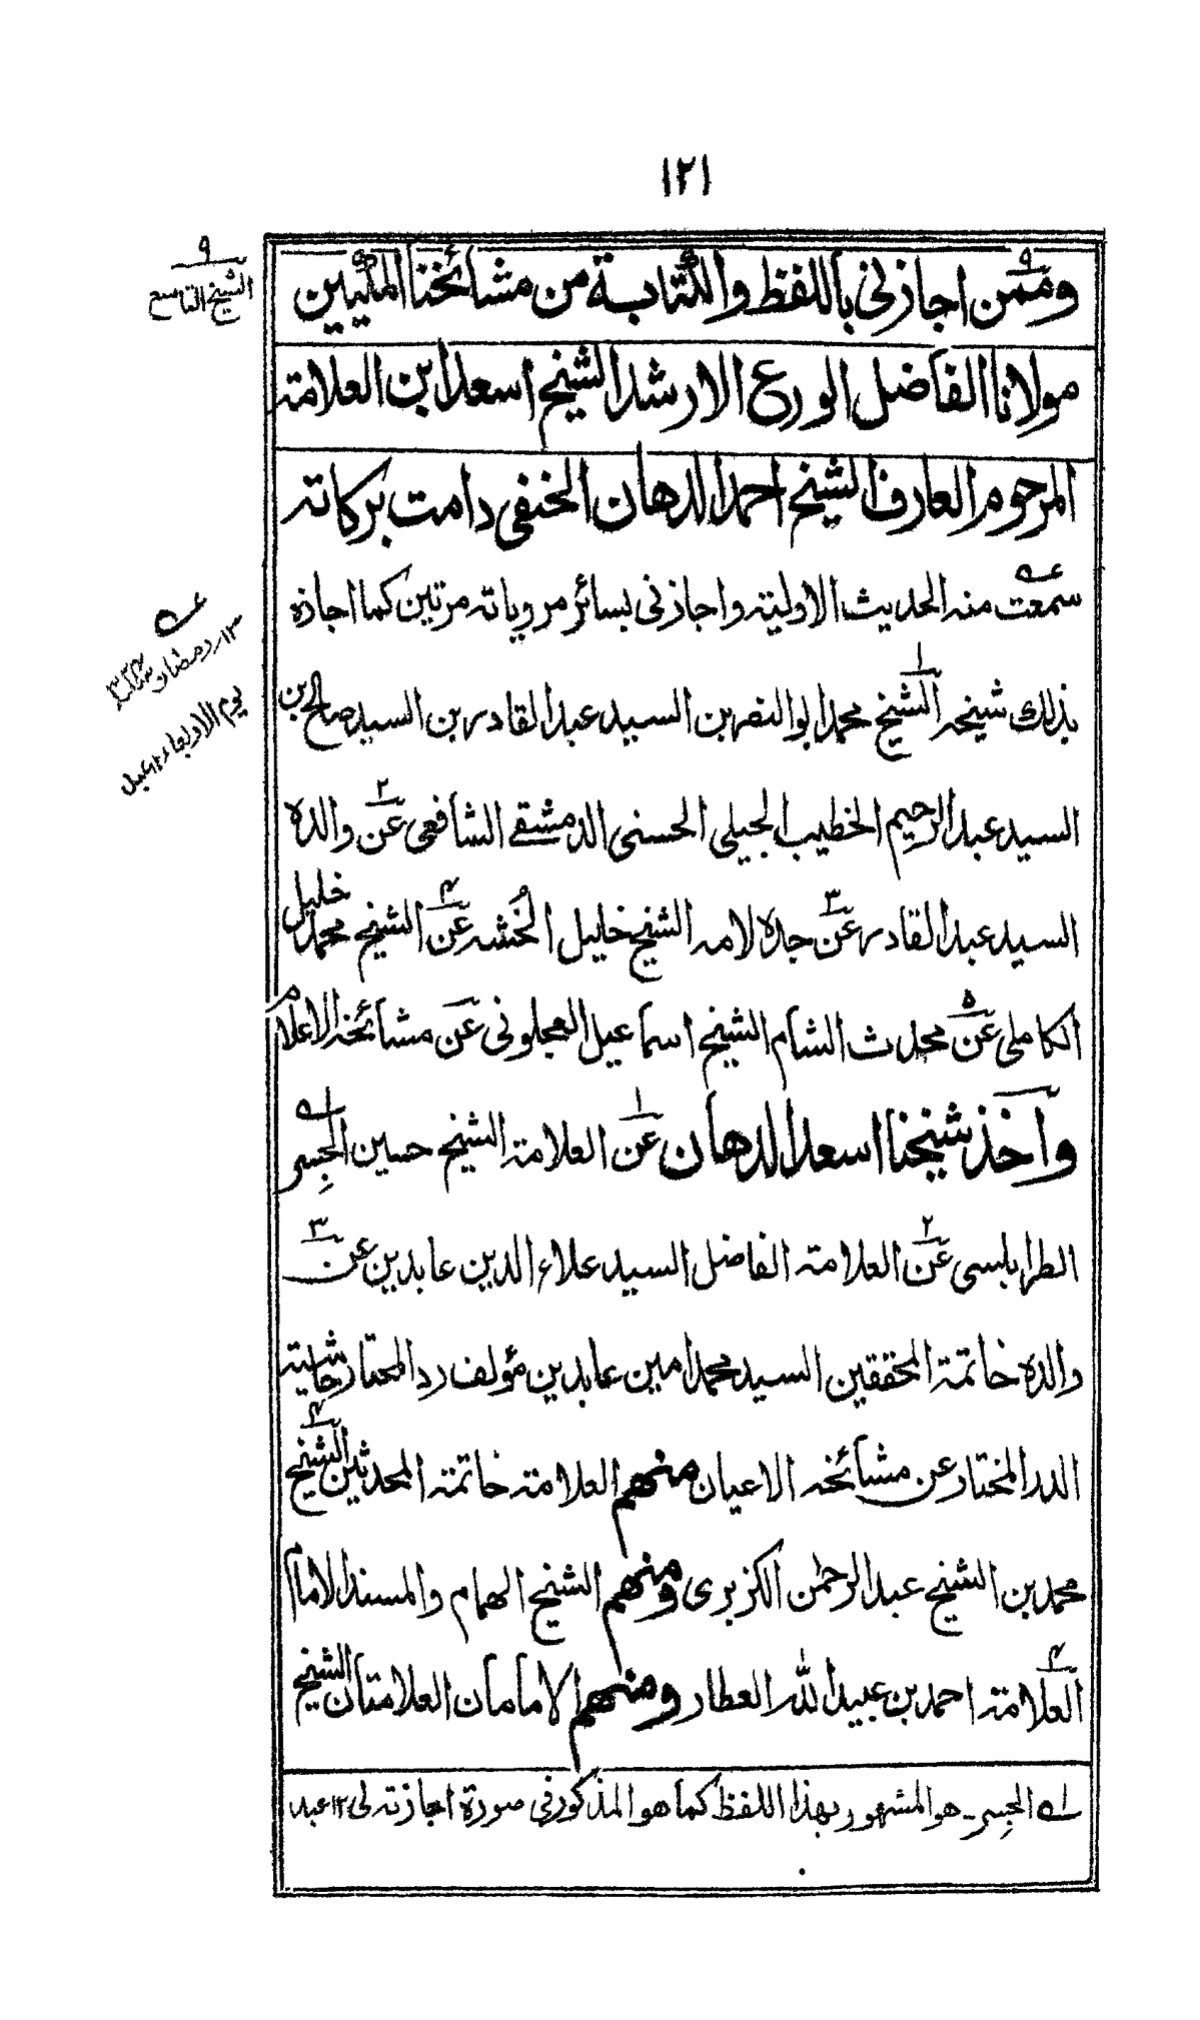 ١٢١
٩
الشيخ التاسع
وممن اجازني باللفظ والكتابة من مشائخنا المكيين
مولانا الفاضل الورع الارشد الشيخ اسعد ابن العلامة
المرحوم العارف الشيخ احمد الدهان الحنفي دامت بركاته
سمعت منه الحديث الاولية واجازني بسائر مروياته مرتين كما اجازه
١٣ رمضان
يوم الاربعاء
بذلك شيخه الشيخ محمد ابو النصر بن السيد عبد القادر بن السيد صالح بن
السيد عبد الرحيم الخطيب الجيلي الحسني الدمشقے الشافعي عن والده
السيد عبد القادر عن جده لامه الشيخ خليل الخُشه عن الشيخ محمد خليل
الكاملي عن محدث الشام الشيخ اسماعيل العجلوني عن مشائخه الاعلام
وآخذ شيخنا اسعد الدهان عن العلامة الشيخ حسين الجِسر
الطرابلسي عن العلامة الفاضل السيد علاء الدين عابدين عن
والده خاتمة المحققين السيد محمد امين عابدين مؤلف رد المحتار حاشية
الدر المختار عن مشائخه الاعيان منهم العلامة خاتمة المحدثين الشيخ
محمد بن الشيخ عبد الرحمٰن الكزبري ومنهم الشيخ الهمام والمسند الامام
العلامة احمد بن عبيد الله العطار ومنهم الامامان العلامتان الشيخ
لے الجِسر۔ هو المشهور بهذا اللفظ كما هو المذكور في صورة اجازته لي ١٢ عبد